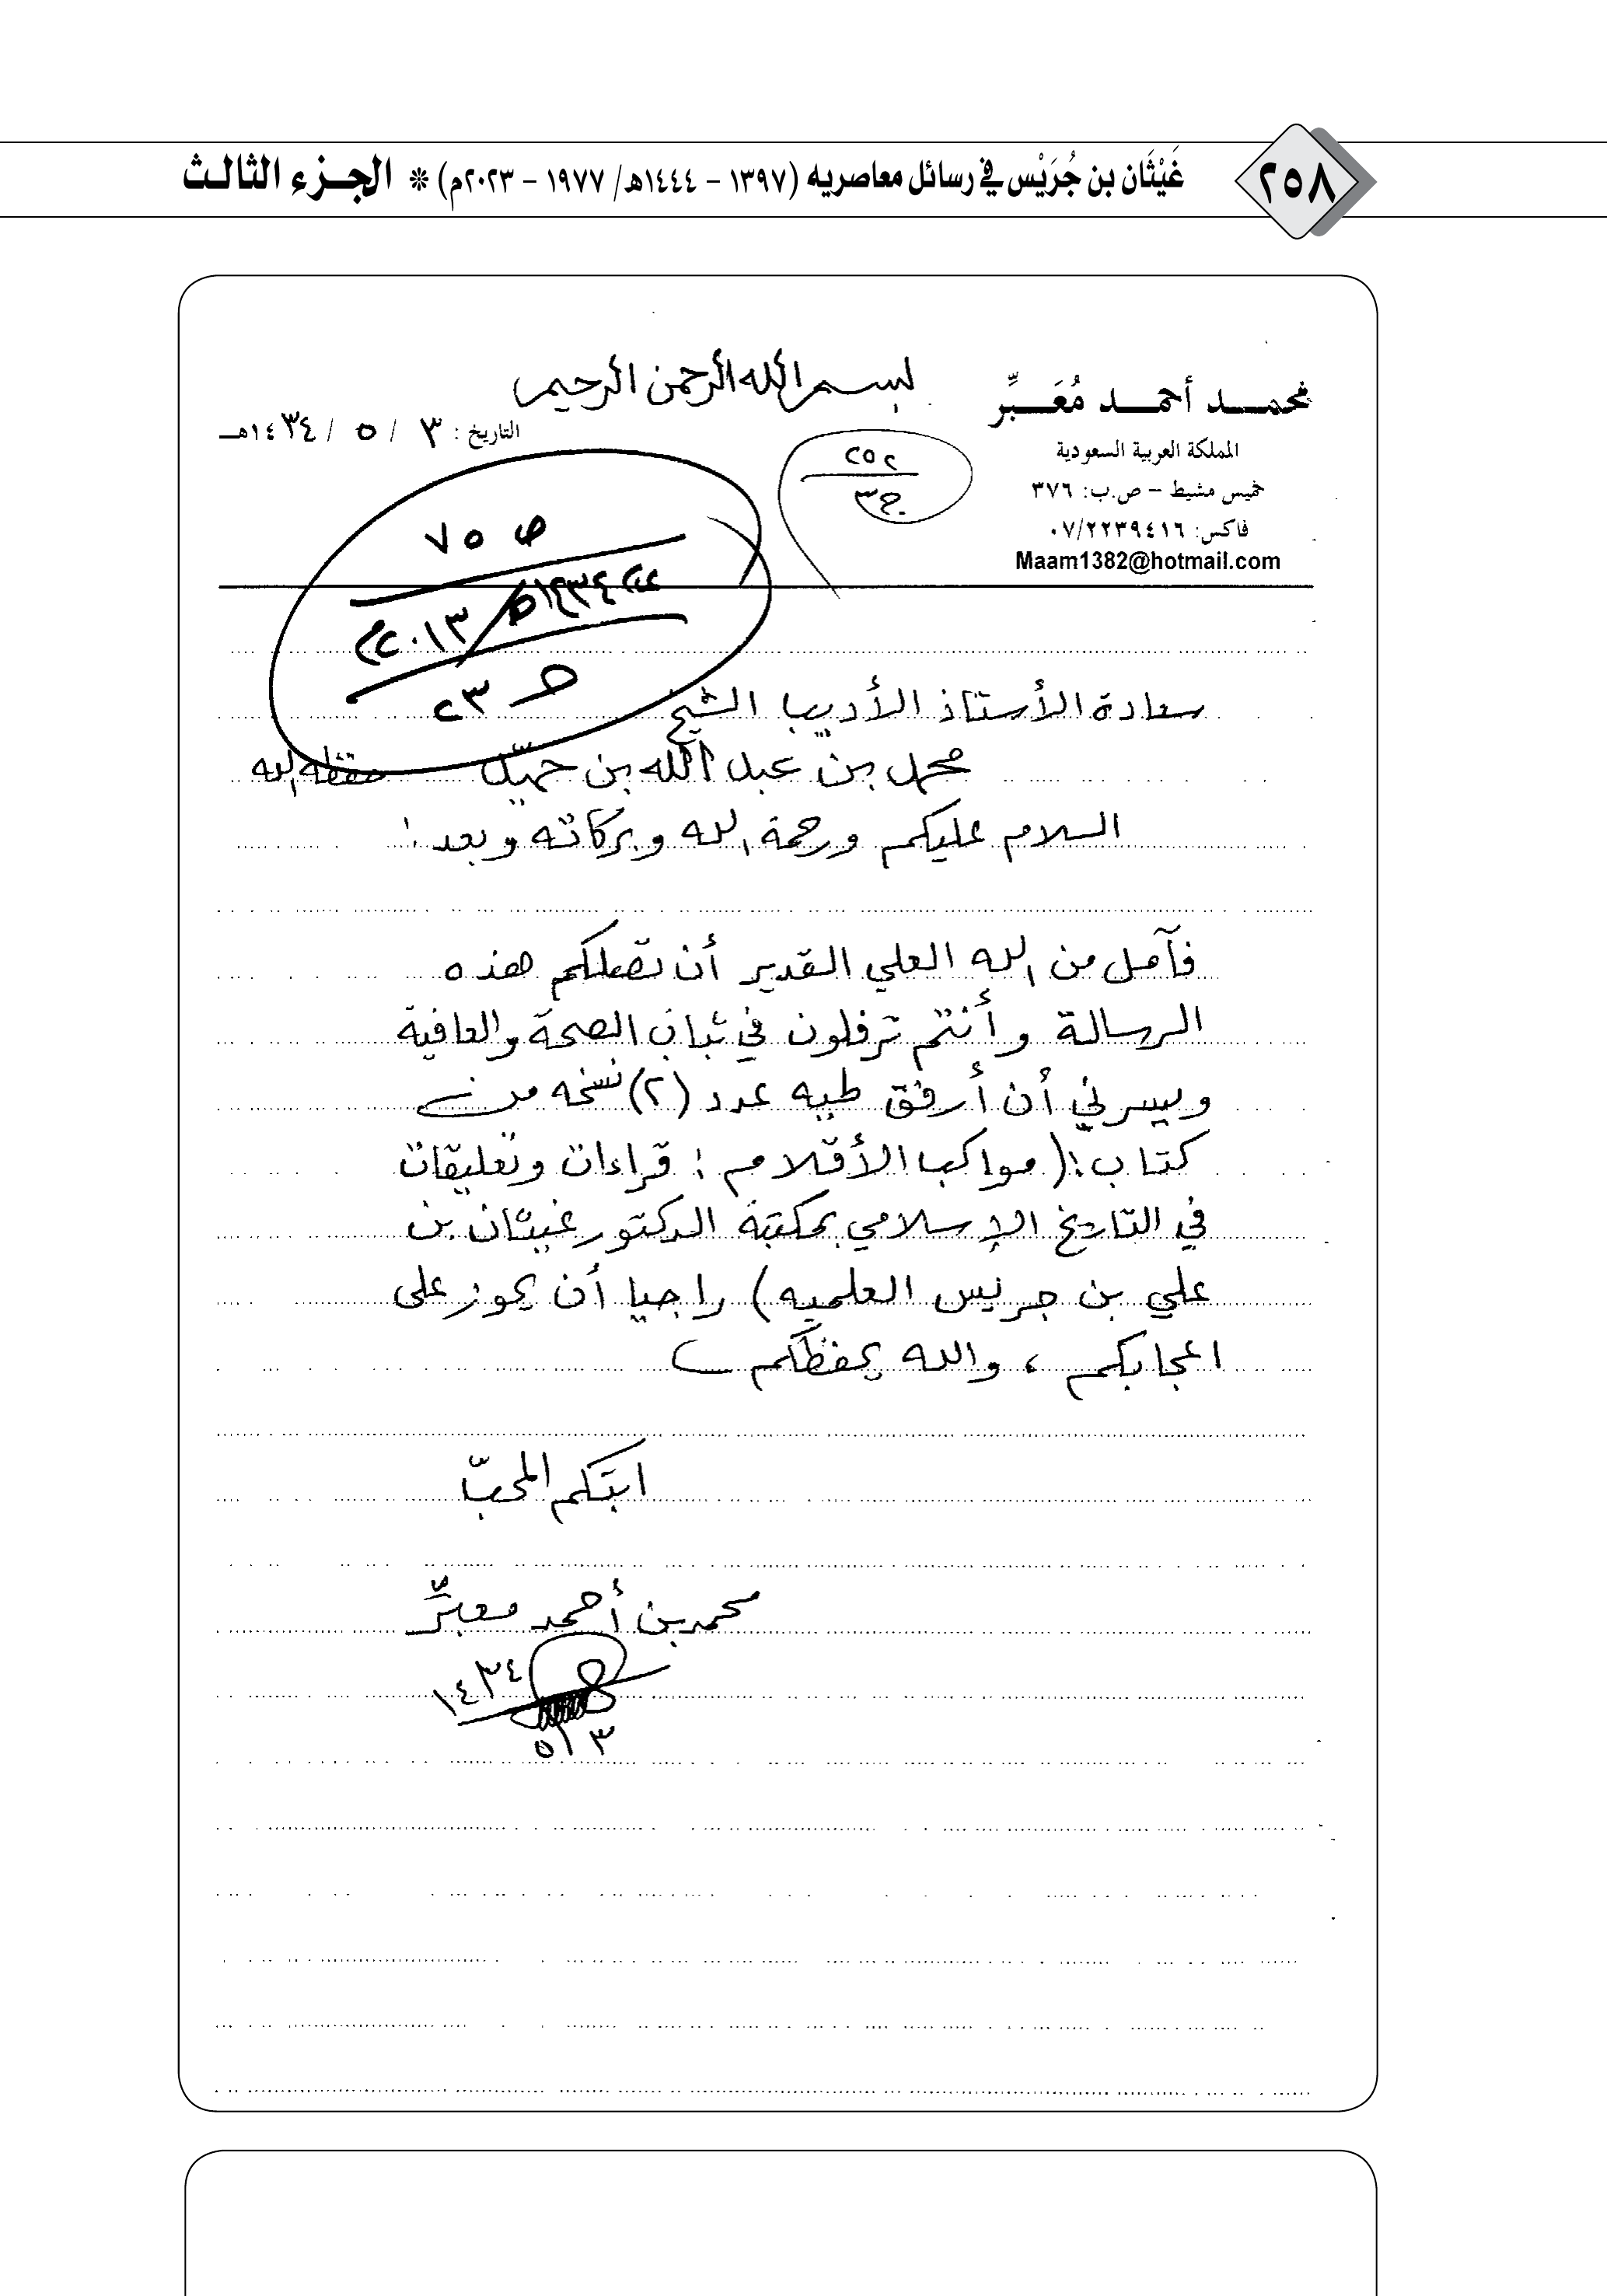 ٢٥٨
غَيْثَان بن جُرَيْس في رسائل معاصريه (١٣٩٧ - ١٤٤٤هـ/ ١٩٧٧ - ٢٠٢٣م) * الجزء الثالث
بسم الله الرحمن الرحيم
محمد أحمد مُعَبِّر
المملكة العربية السعودية
خميس مشيط - ص.ب: ٣٧٦
فاكس: ٠٧/٢٢٣٩٤١٦
Maam1382@hotmail.com
التاريخ: ٣ / ٥ / ١٤٣٤هـ
٢٥٢
ج٣
ص ٧٥
١٤٣٤هـ/٢٠١٣م
ح ٢٣
سعادة الأستاذ الأديب الشيخ
محمد بن عبد الله بن حميّد حفظه الله
السلام عليكم ورحمة الله وبركاته وبعد:
فآمل من الله العلي القدير أن تصلكم هذه
الرسالة وأنتم ترفلون في ثياب الصحة والعافية
ويسرني أن أرفق طيه عدد (٢) نسخه من
كتاب: (مواكب الأقلام: قراءات وتعليقات
في التاريخ الإسلامي بمكتبة الدكتور غيثان بن
علي بن جريس العلميه) راجيا أن يحوز على
اعجابكم، والله يحفظكم
ابنكم المحبّ
محمد بن أحمد معبِّر
١٤٣٤
٥/٣